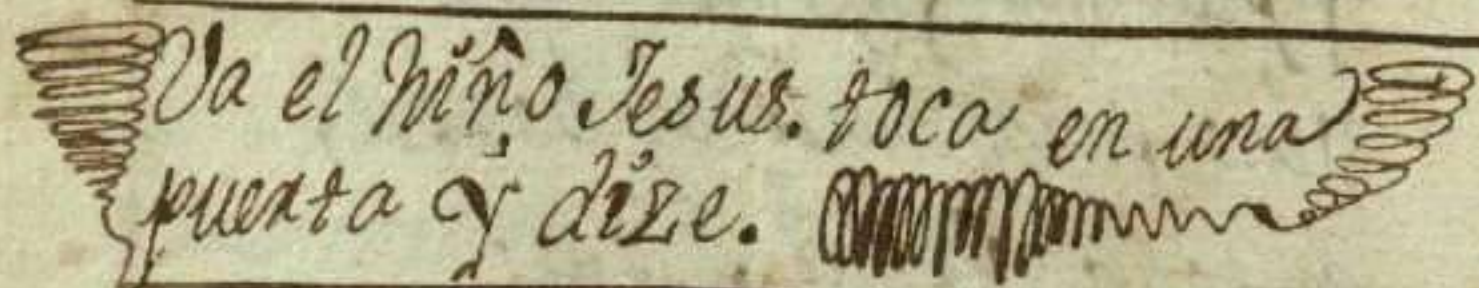 Va el Niño Jesus. toca en una
puerta y dize.